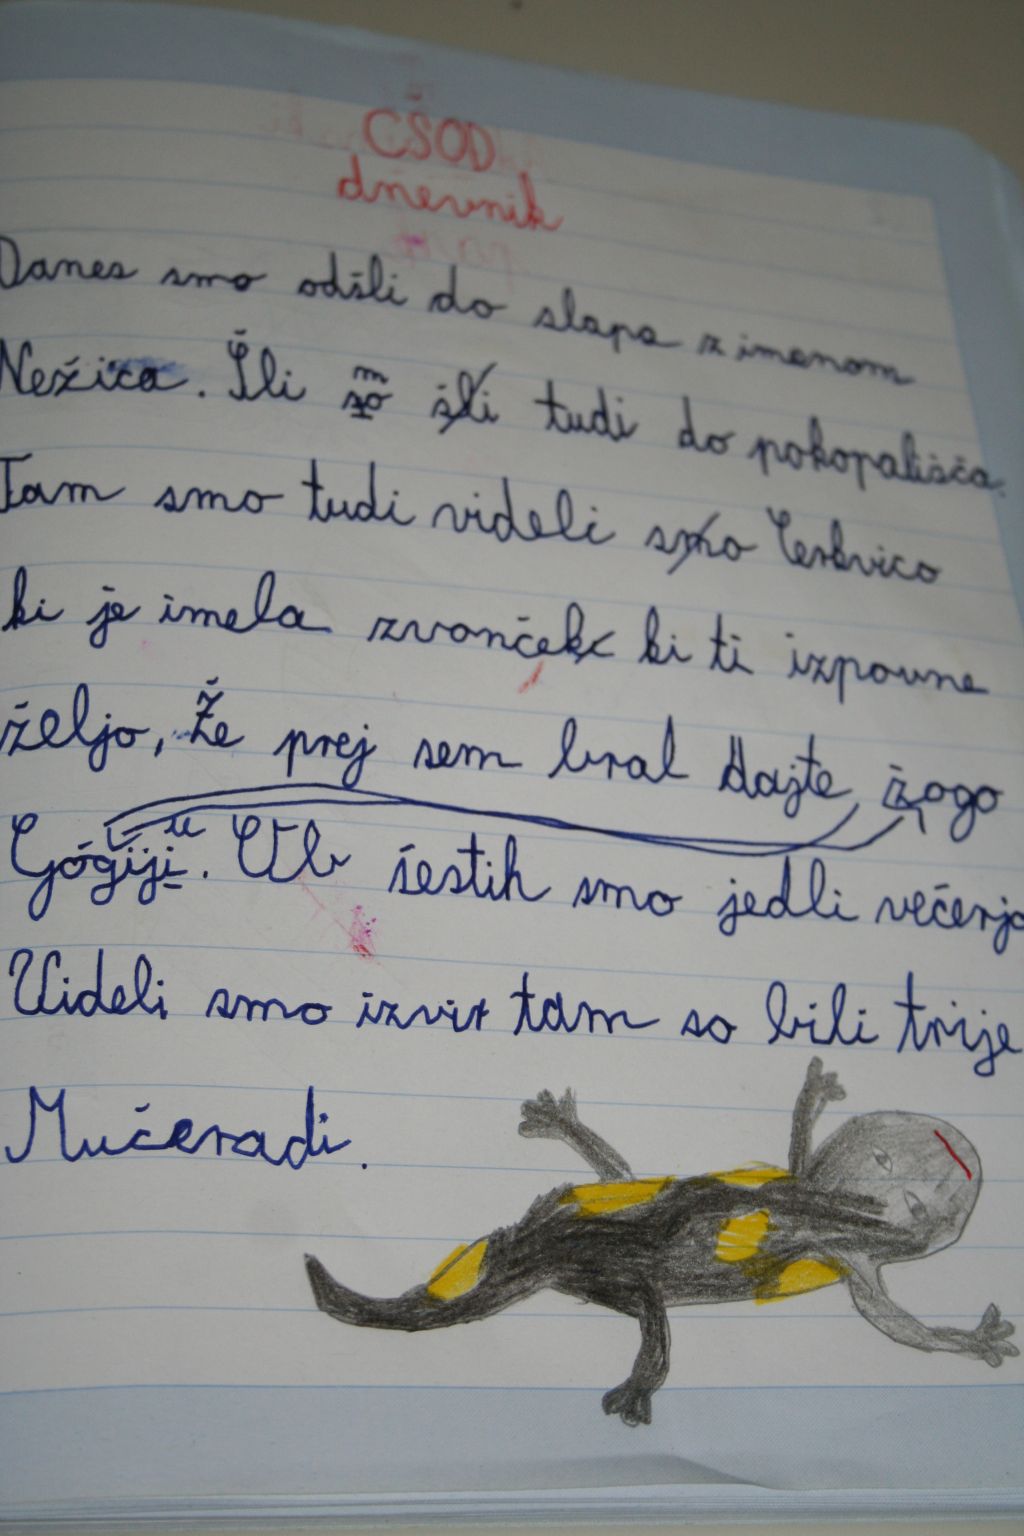 CŠOD
dnevnik
Danes smo odšli do slapa z imenom
Nežica. Šli smo šli tudi do pokopališča.
Tam smo tudi videli smo Cerkvico
ki je imela zvonček ki ti izpovne
željo, Že prej sem bral dajte žogo
Gógiji. Ob šestih smo jedli večerjo
Videli smo izvir tam so bili trije
Mučeradi.